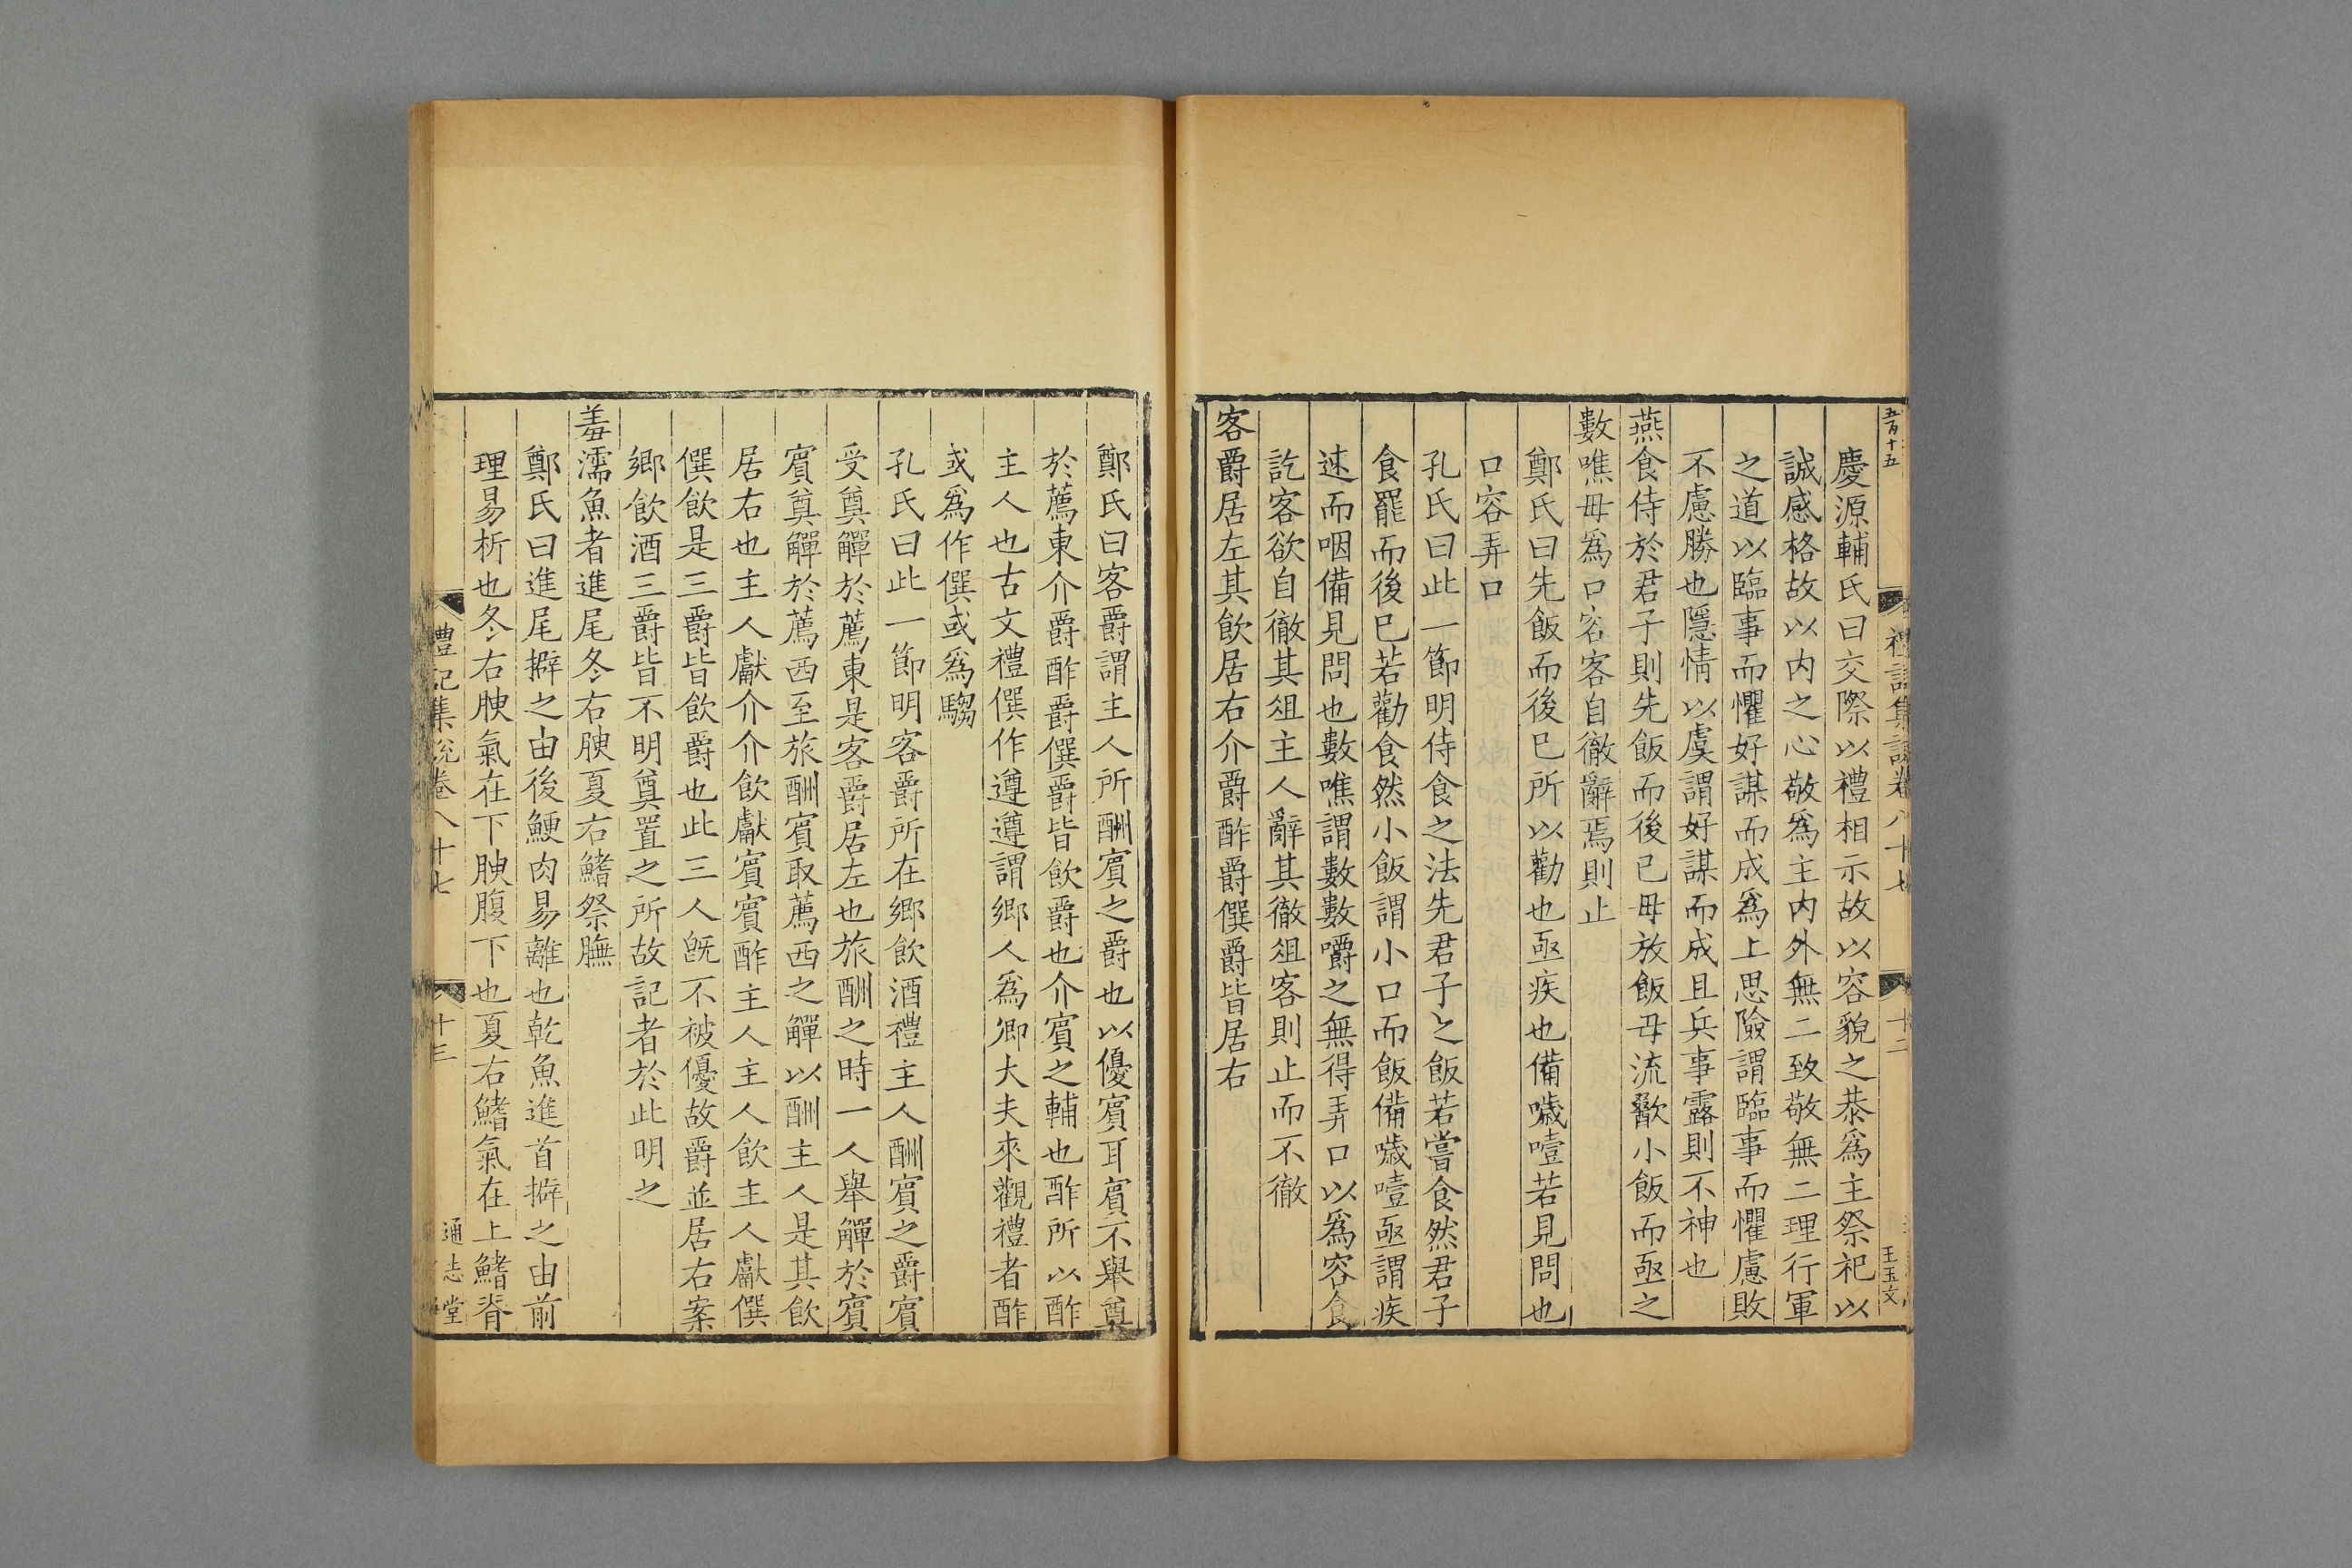 慶源輔氏曰交際以禮相示故以容貌之恭爲主祭祀以
誠感格故以内之心敬爲主内外無二致敬無二理行軍
之道以臨事而懼好謀而成爲上思險謂臨事而懼慮敗
不慮勝也隱情以虞謂好謀而成且兵事露則不神也
燕食侍於君子則先飯而後已毋放飯毋流歠小飯而亟之
數噍毋爲口容客自徹辭焉則止
鄭氏曰先飯而後已所以勸也亟疾也備噦噎若見問也
口容弄口
孔氏曰此一節明侍食之法先君子之飯若嘗食然君子
食罷而後已若勸食然小飯謂小口而飯備噦噎亟謂疾
速而咽備見問也數噍謂數數嚼之無得弄口以爲容食
訖客欲自徹其俎主人辭其徹俎客則止而不徹
客爵居左其飲居右介爵酢爵僎爵皆居右
鄭氏曰客爵謂主人所酬賓之爵也以優賓耳賓不舉奠
於薦東介爵酢爵僎爵皆飲爵也介賓之輔也酢所以酢
主人也古文禮僎作遵遵謂鄉人爲卿大夫來觀禮者酢
或爲作僎或爲騶
孔氏曰此一節明客爵所在鄉飲酒禮主人酬賓之爵賓
受奠觶於薦東是客爵居左也旅酬之時一人舉觶於賓
賓奠觶於薦西至旅酬賓取薦西之觶以酬主人是其飲
居右也主人獻介介飲獻賓賓酢主人主人飲主人獻僎
僎飲是三爵皆飲爵也此三人旣不被優故爵並居右案
鄉飲酒三爵皆不明奠置之所故記者於此明之
羞濡魚者進尾冬右腴夏右鰭祭膴
鄭氏曰進尾擗之由後鯁肉易離也乾魚進首擗之由前
理易析也冬右腴氣在下腴腹下也夏右鰭氣在上鰭脊
禮記集說卷八十七
十三
通志堂